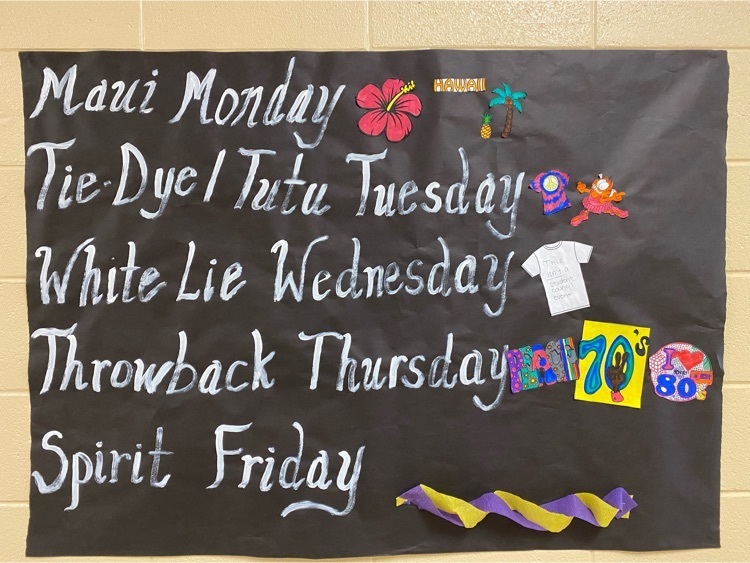 Maui Monday HAWAII
Tie-Dye/Tutu Tuesday
White Lie Wednesday
Throwback Thursday 70's I THE 80
Spirit Friday